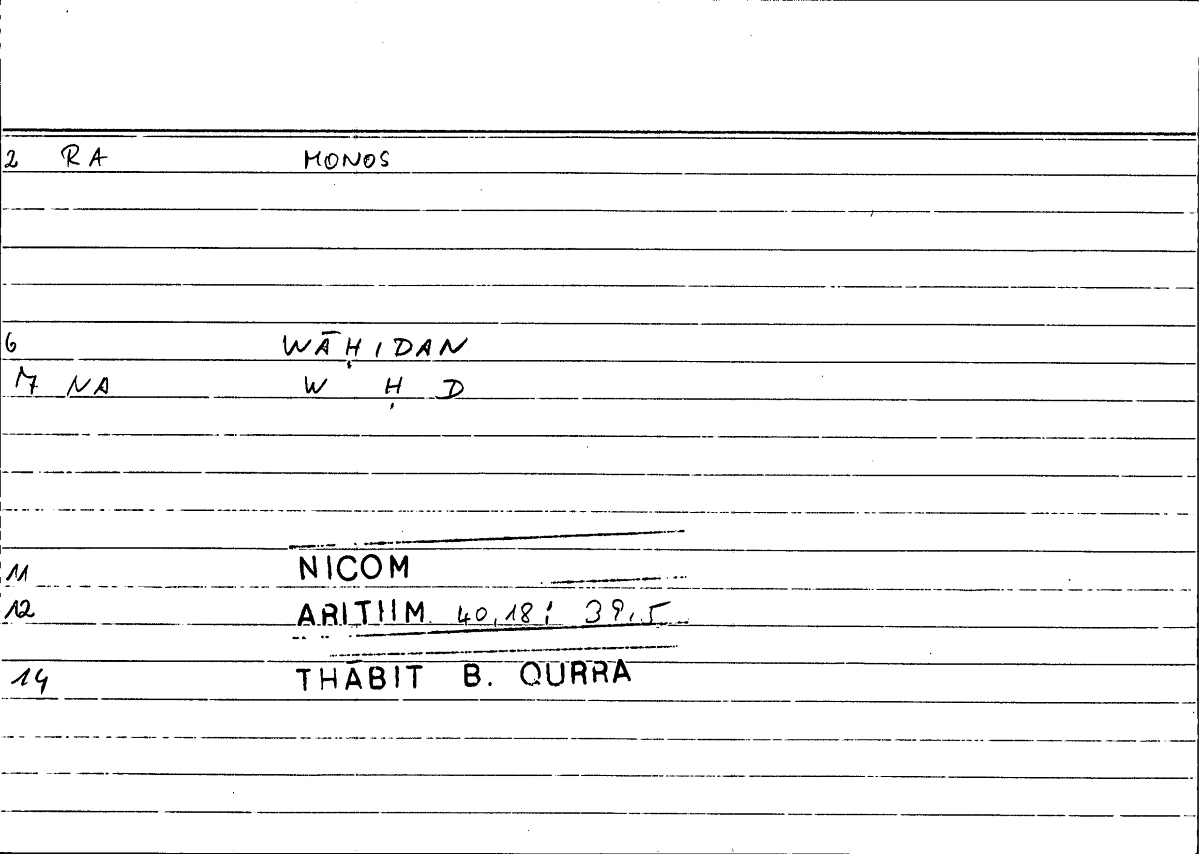 2 RA MONOS
6 WĀḤIDAN
7 NA W Ḥ D
11 NICOM
12 ARITHM 40,18; 39,5
14 THĀBIT B. QURRA